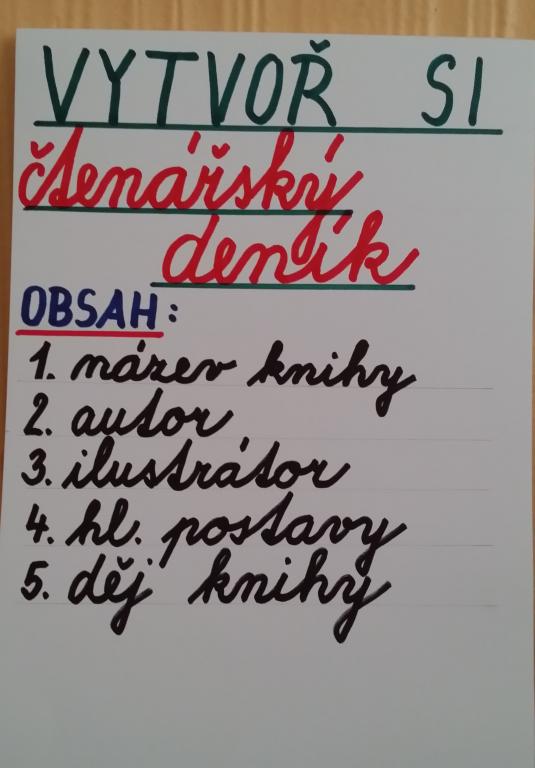 VYTVOŘ SI
čtenářský
deník
OBSAH:
1. název knihy
2. autor
3. ilustrátor
4. hl. postavy
5. děj knihy